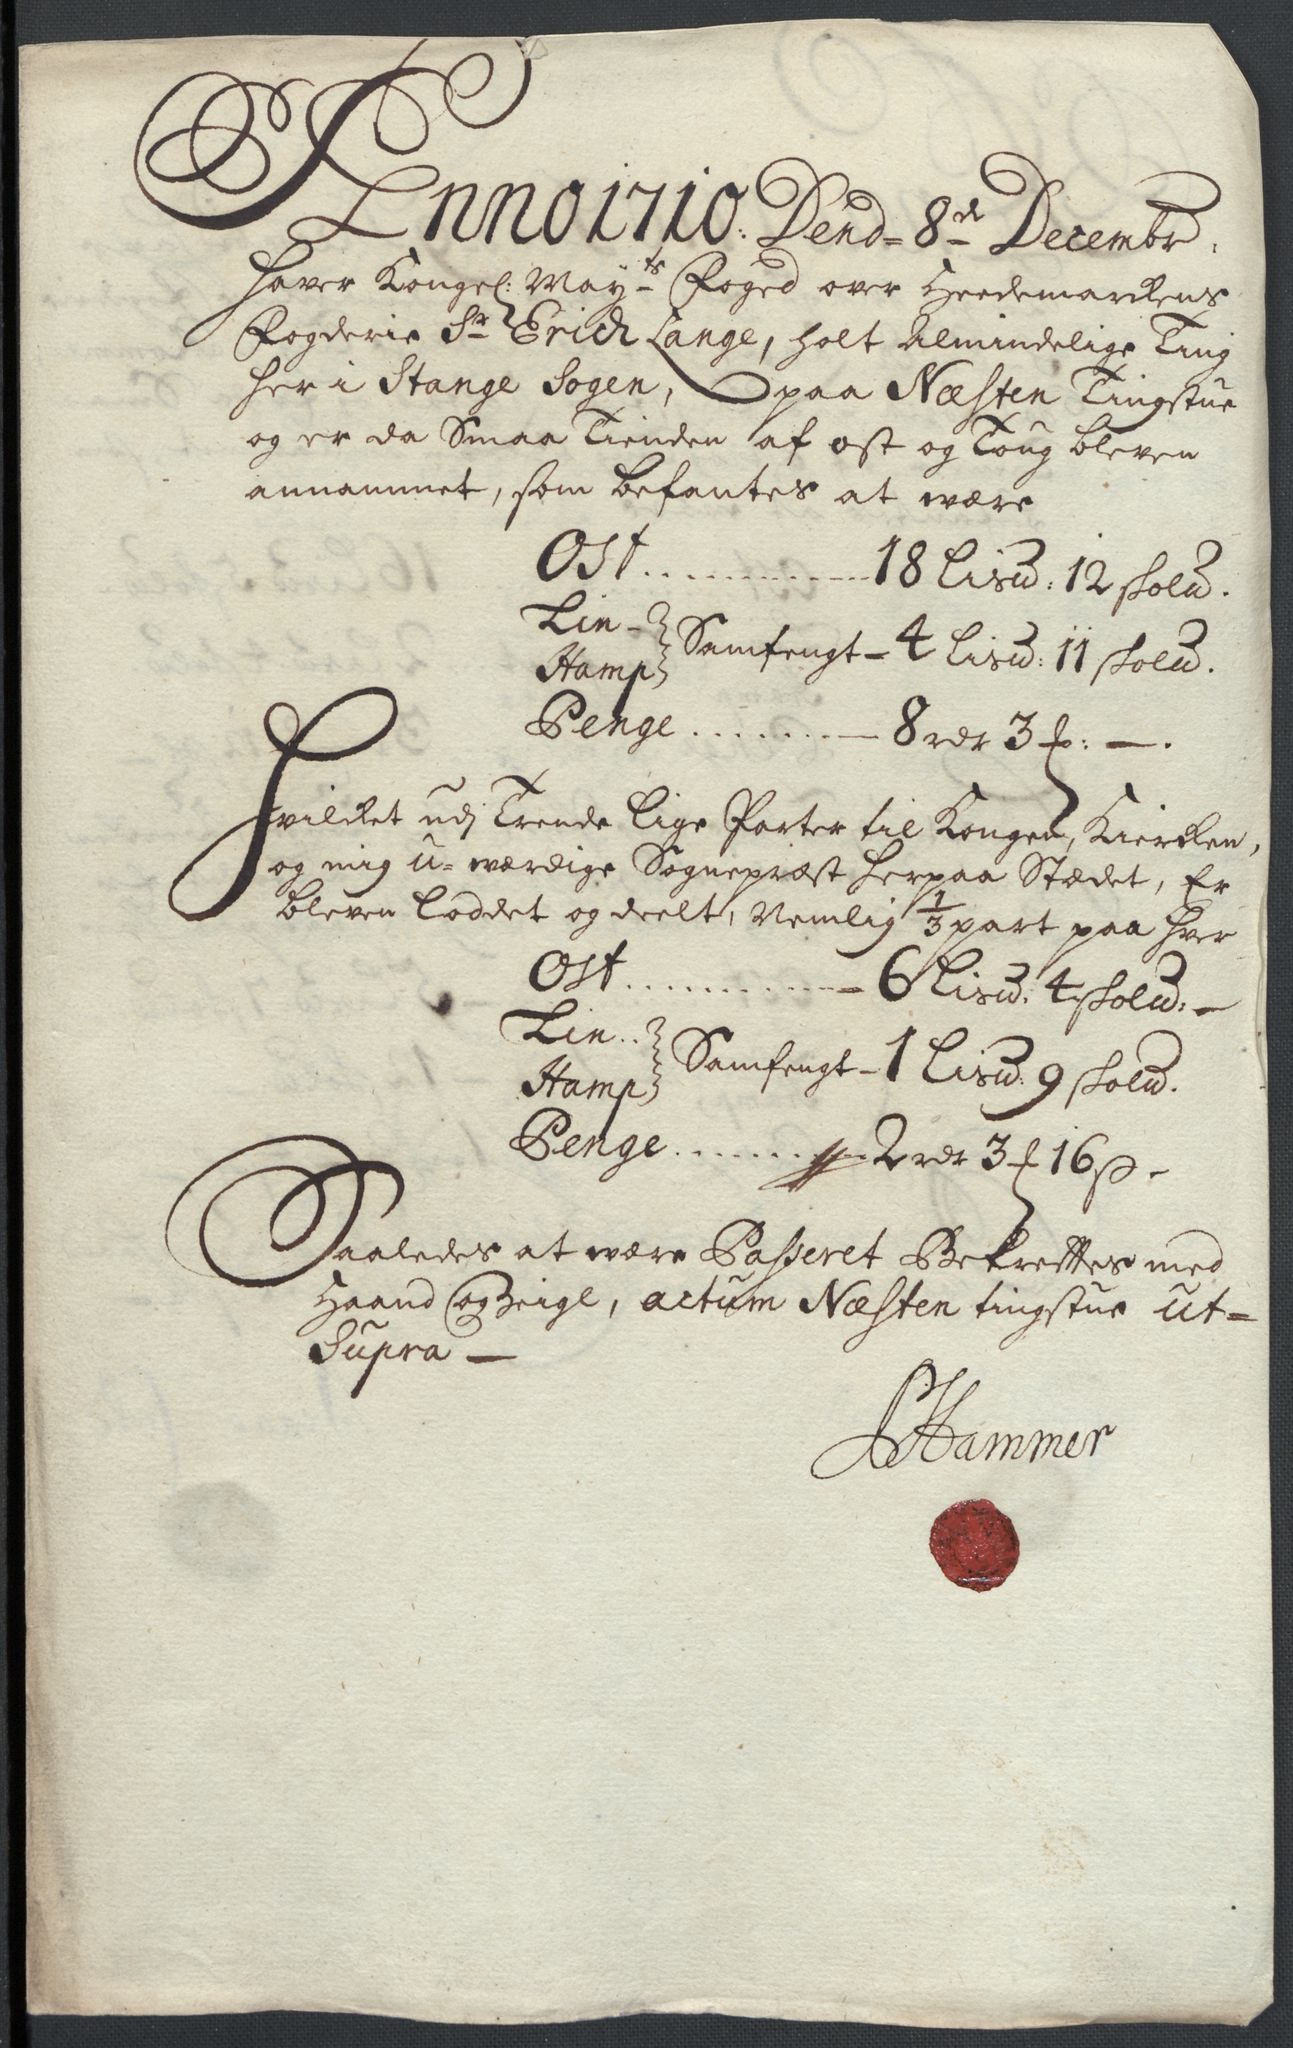 Anno 1710. Dend= 8de Decembr.
Haver Kongel: Mayts Foged over Heedemarckens
Fogderie Sr Erich Lange, holt Almindelige Ting
her i Stange Sogen, paa Næsten Tingstue
og er da Smaa Tienden af ost og Toug bleven
annammet, som befantes at være
Ost ........... 18 Lisd: 12 skold.
Lin -
Hamp } Samfengt - 4 Lisd: 11 skold.
Penge ........ 8 rdr 3 f: —.
Hvilcket udj Trende Lige Parter til Kongen, Kiercken,
og mig u=værdige Sognepræst her paa Stædet, Er
bleven Loddet og deelt, Nemlig 1/3 part paa hver
Ost ........... 6 Lisd: 4 skold: -
Lin ..
Hamp } Samfengt - 1 Lisd: 9 skold.
Penge ........ 2 rdr 3 f 16 ß -
Saaledes at være Passeret Bekreftes med
Haand og Zeigl, actum Næsten tingstue ut=
Supra —
Hammer